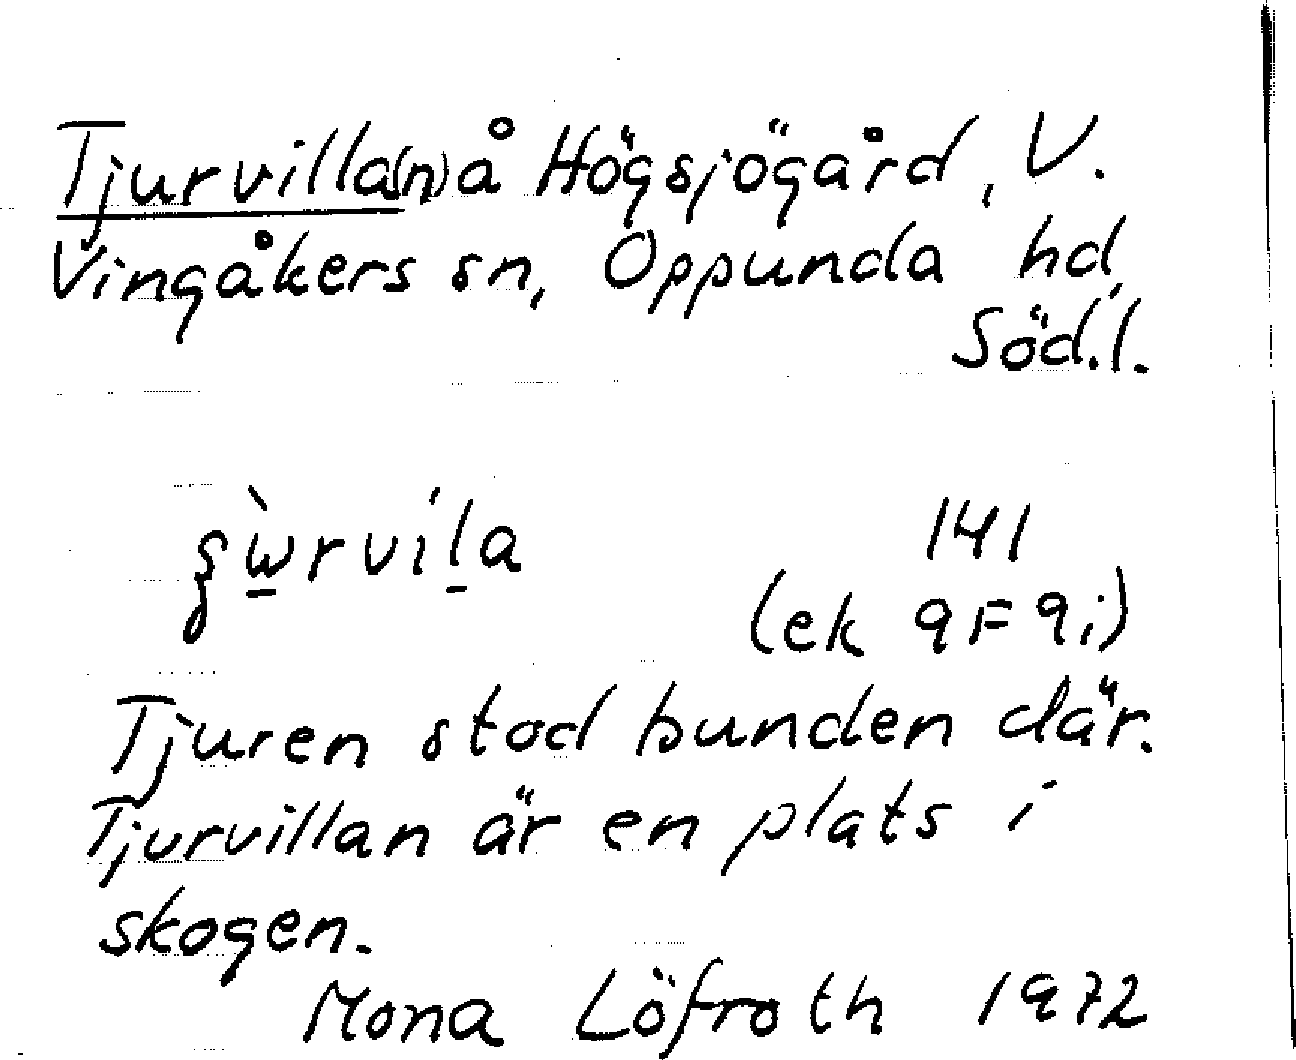 Tjurvilla(n) å Högsjögård, V.
Vingåkers sn, Oppunda hd,
Söd.l.
141
(ek 9F9i)
Tjuren stod bunden där.
Tjurvillan är en plats i
skogen.
Mona Löfroth 1972